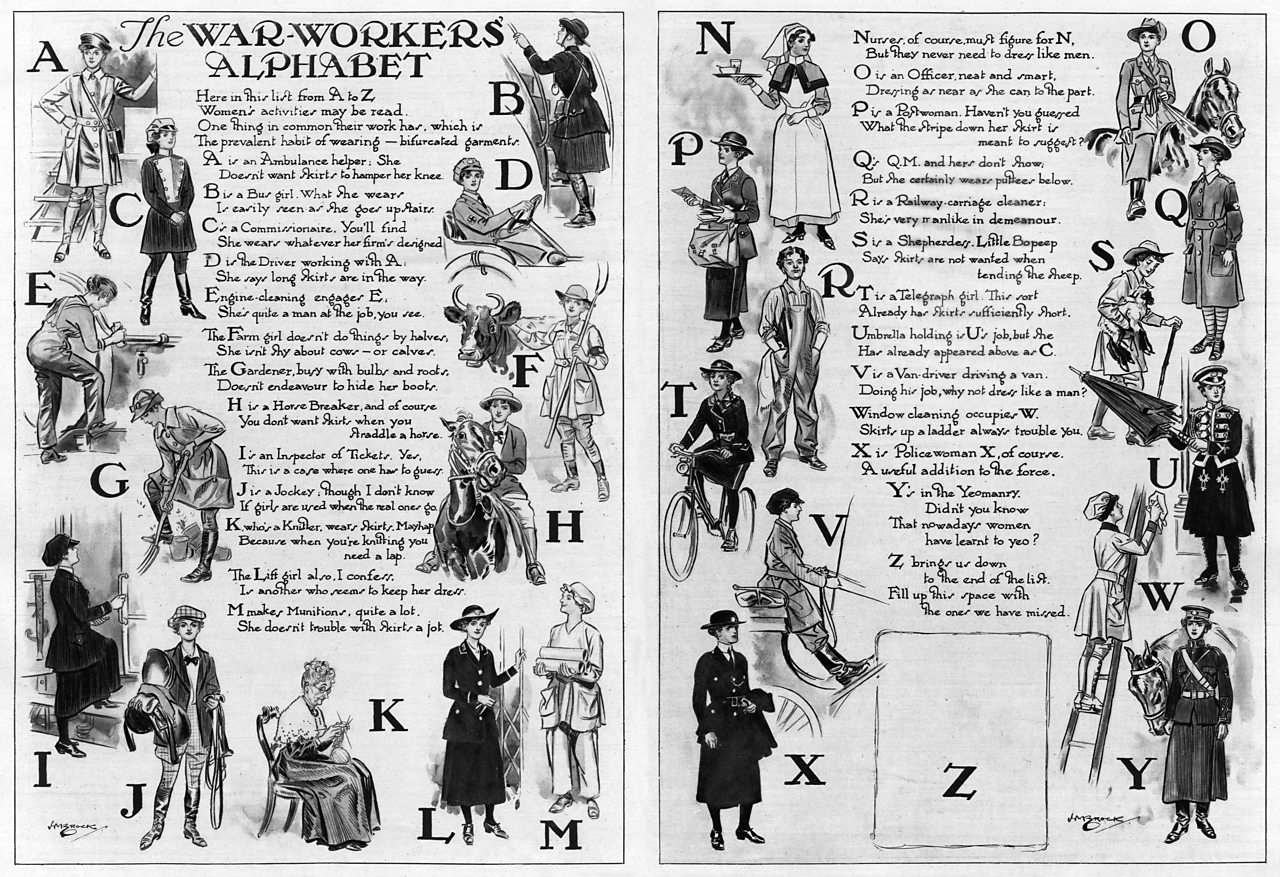 The WAR-WORKERS'
ALPHABET
Here in this list from A to Z
Women's activities may be read.
One thing in common their work has, which is
The prevalent habit of wearing — bifurcated garments.
A is an Ambulance helper; She
Doesn't want skirts to hamper her knee.
B is a Bus girl. What she wears
Is easily seen as she goes upstairs.
C's a Commissionaire. You'll find
She wears whatever her firm's designed
D is the Driver working with A:
She says long skirts are in the way.
Engine-cleaning engages E;
She's quite a man at the job, you see.
The Farm girl doesn't do things by halves,
She isn't shy about cows — or calves.
The Gardener, busy with bulbs and roots,
Doesn't endeavour to hide her boots.
H is a Horse Breaker, and of course
You don't want skirts when you
straddle a horse.
I's an Inspector of Tickets. Yes,
This is a case where one has to guess.
J is a Jockey; though I don't know
If girls are used when the real ones go.
K, who's a Knitter, wears skirts. Mayhap
Because when you're knitting you
need a lap.
The Lift girl also, I confess,
Is another who seems to keep her dress.
M makes Munitions, quite a lot.
She doesn't trouble with skirts a jot.
A
B
C
D
E
F
G
H
I
J
K
L
M
J.M.BROCK
Nurses, of course, must figure for N,
But they never need to dress like men.
O is an Officer, neat and smart,
Dressing as near as she can to the part.
P is a Postwoman. Haven't you guessed
What the stripe down her skirt is
meant to suggest?
Q's Q.M. and hers don't show,
But she certainly wears puttees below.
R is a Railway-carriage cleaner;
She's very manlike in demeanour.
S is a Shepherdess. Little Bopeep
Says skirts are not wanted when
tending the sheep.
T is a Telegraph girl. This sort
Already has skirts sufficiently short.
Umbrella holding is U's job, but she
Has already appeared above as C.
V is a Van-driver driving a van.
Doing his job, why not dress like a man?
Window cleaning occupies W.
Skirts up a ladder always trouble you.
X is Policewoman X, of course.
A useful addition to the force.
Y's in the Yeomanry.
Didn't you know
That nowadays women
have learnt to yeo?
Z brings us down
to the end of the list.
Fill up this space with
the ones we have missed.
N
O
P
Q
R
S
T
U
V
W
X
Y
Z
J.M.BROCK